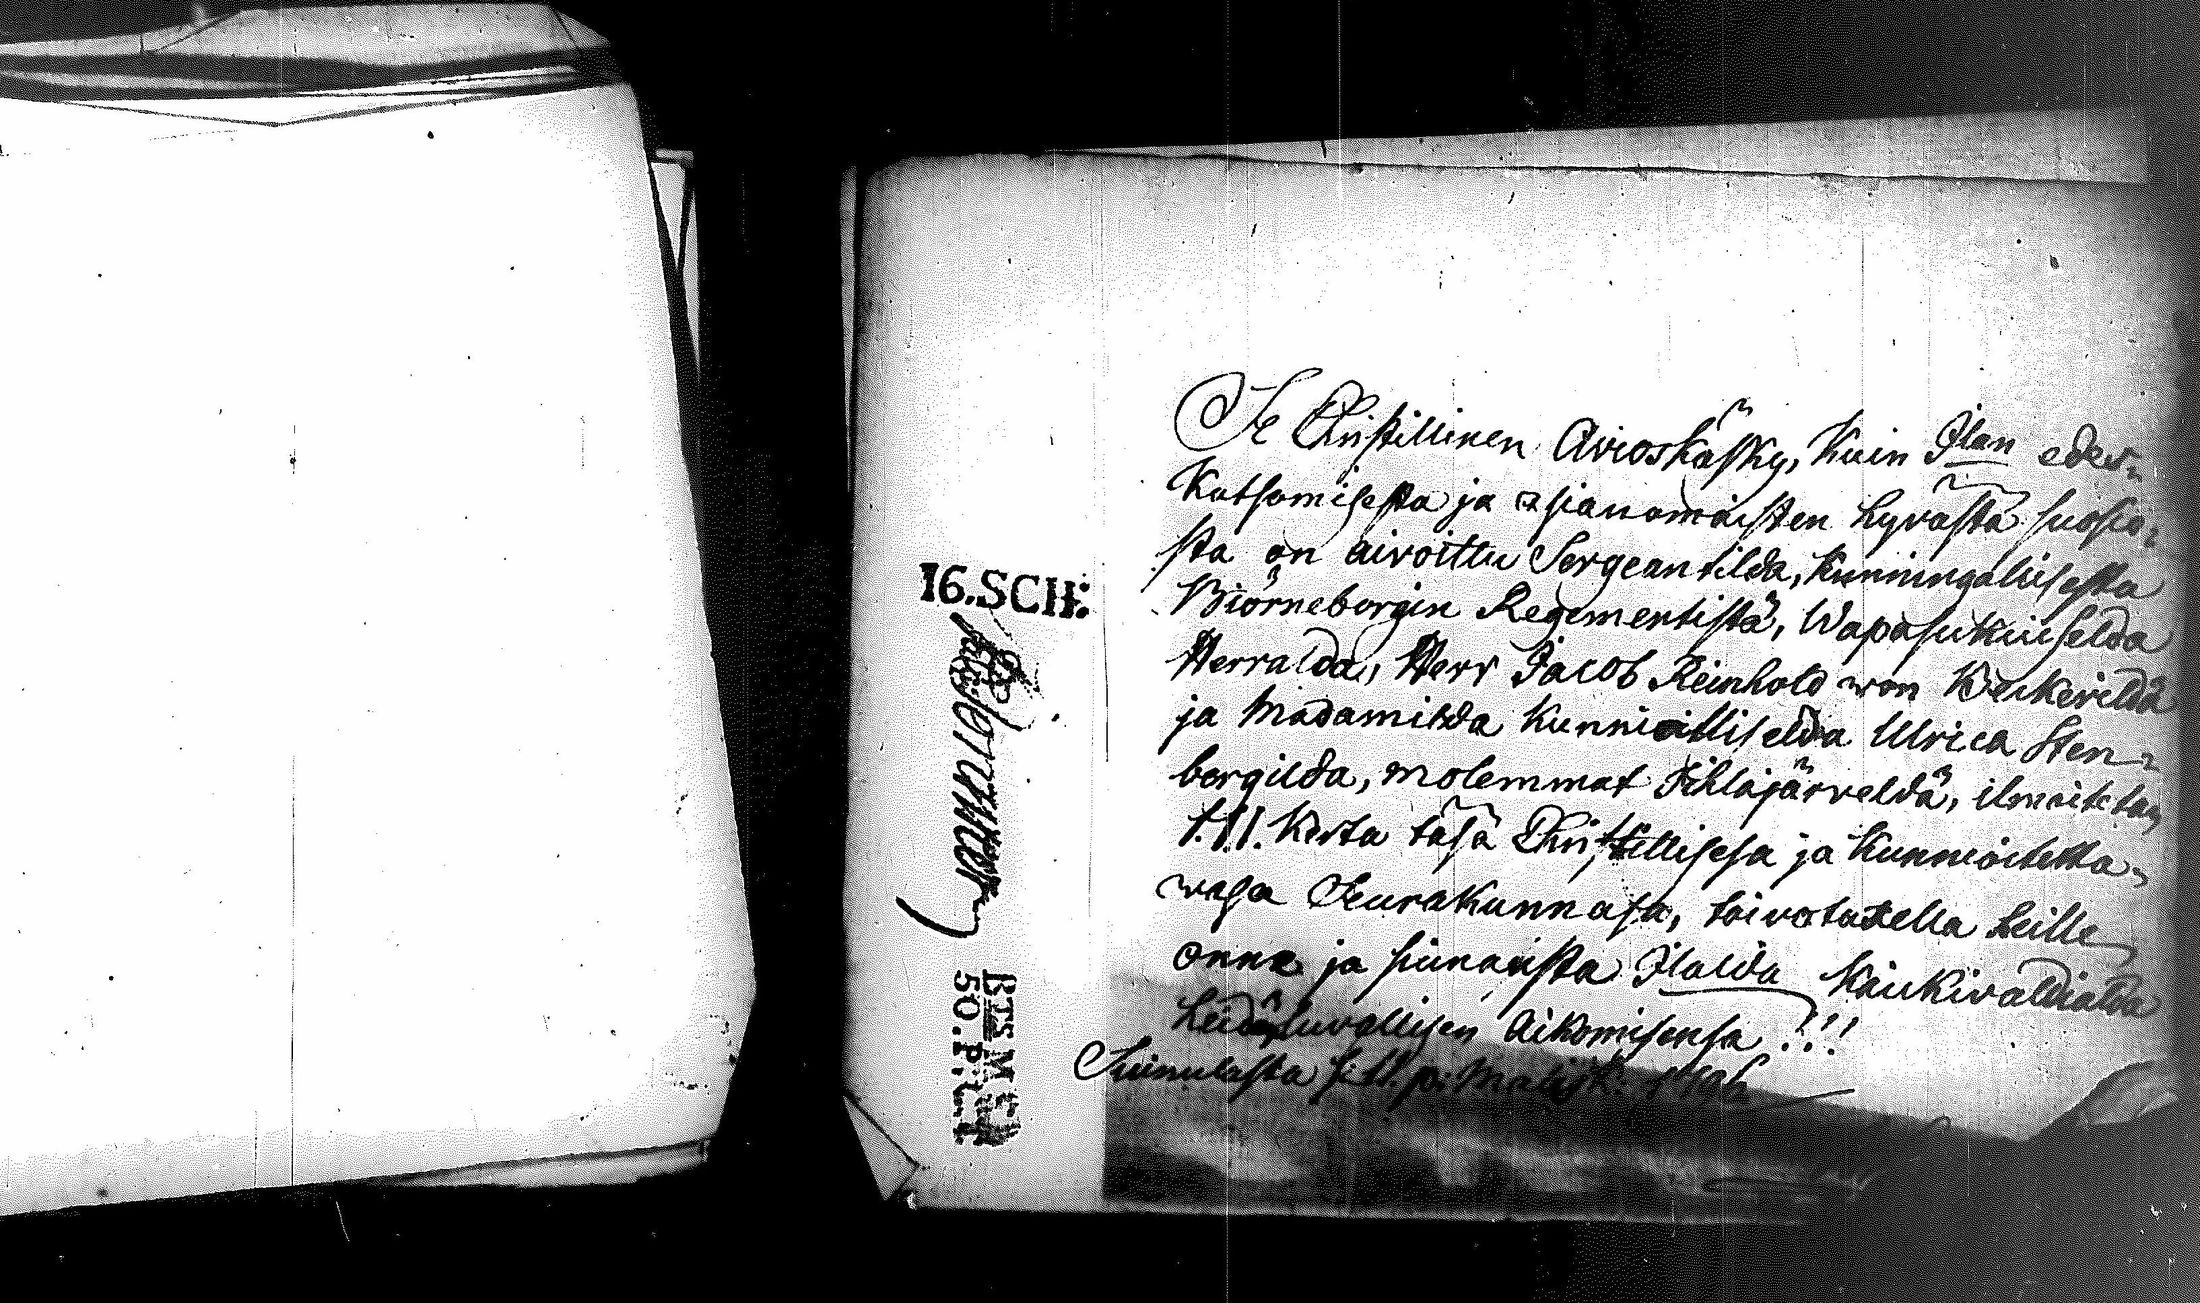 16.SCH:
BTS M
50.P:L:T
Se Christillinen Avioskäsky, Kuin Ilan edes-
Katsomisesta ja asianomaisten hyvästä suosio-
sta on aivoittu Sergeantilda, Kuningalisesta
Biörneborgin Regementistä, Wapasukuiselda
Herralda, Herr Jacob Reinhold von Beckerildä
ja Madamilda Kunnioitliselda Ulrica Sten-
bergilda, molemmat Pihlajärveldä, ilmoitetan
I.II. Kerta täsä Christillisesä ja Kunnioitetta-
wasa Seurakunnasa, toivotatella heille
onne ja siunausta Ilalda Kaickivaldialda
heidän luvallisen Aikomisensa !!!